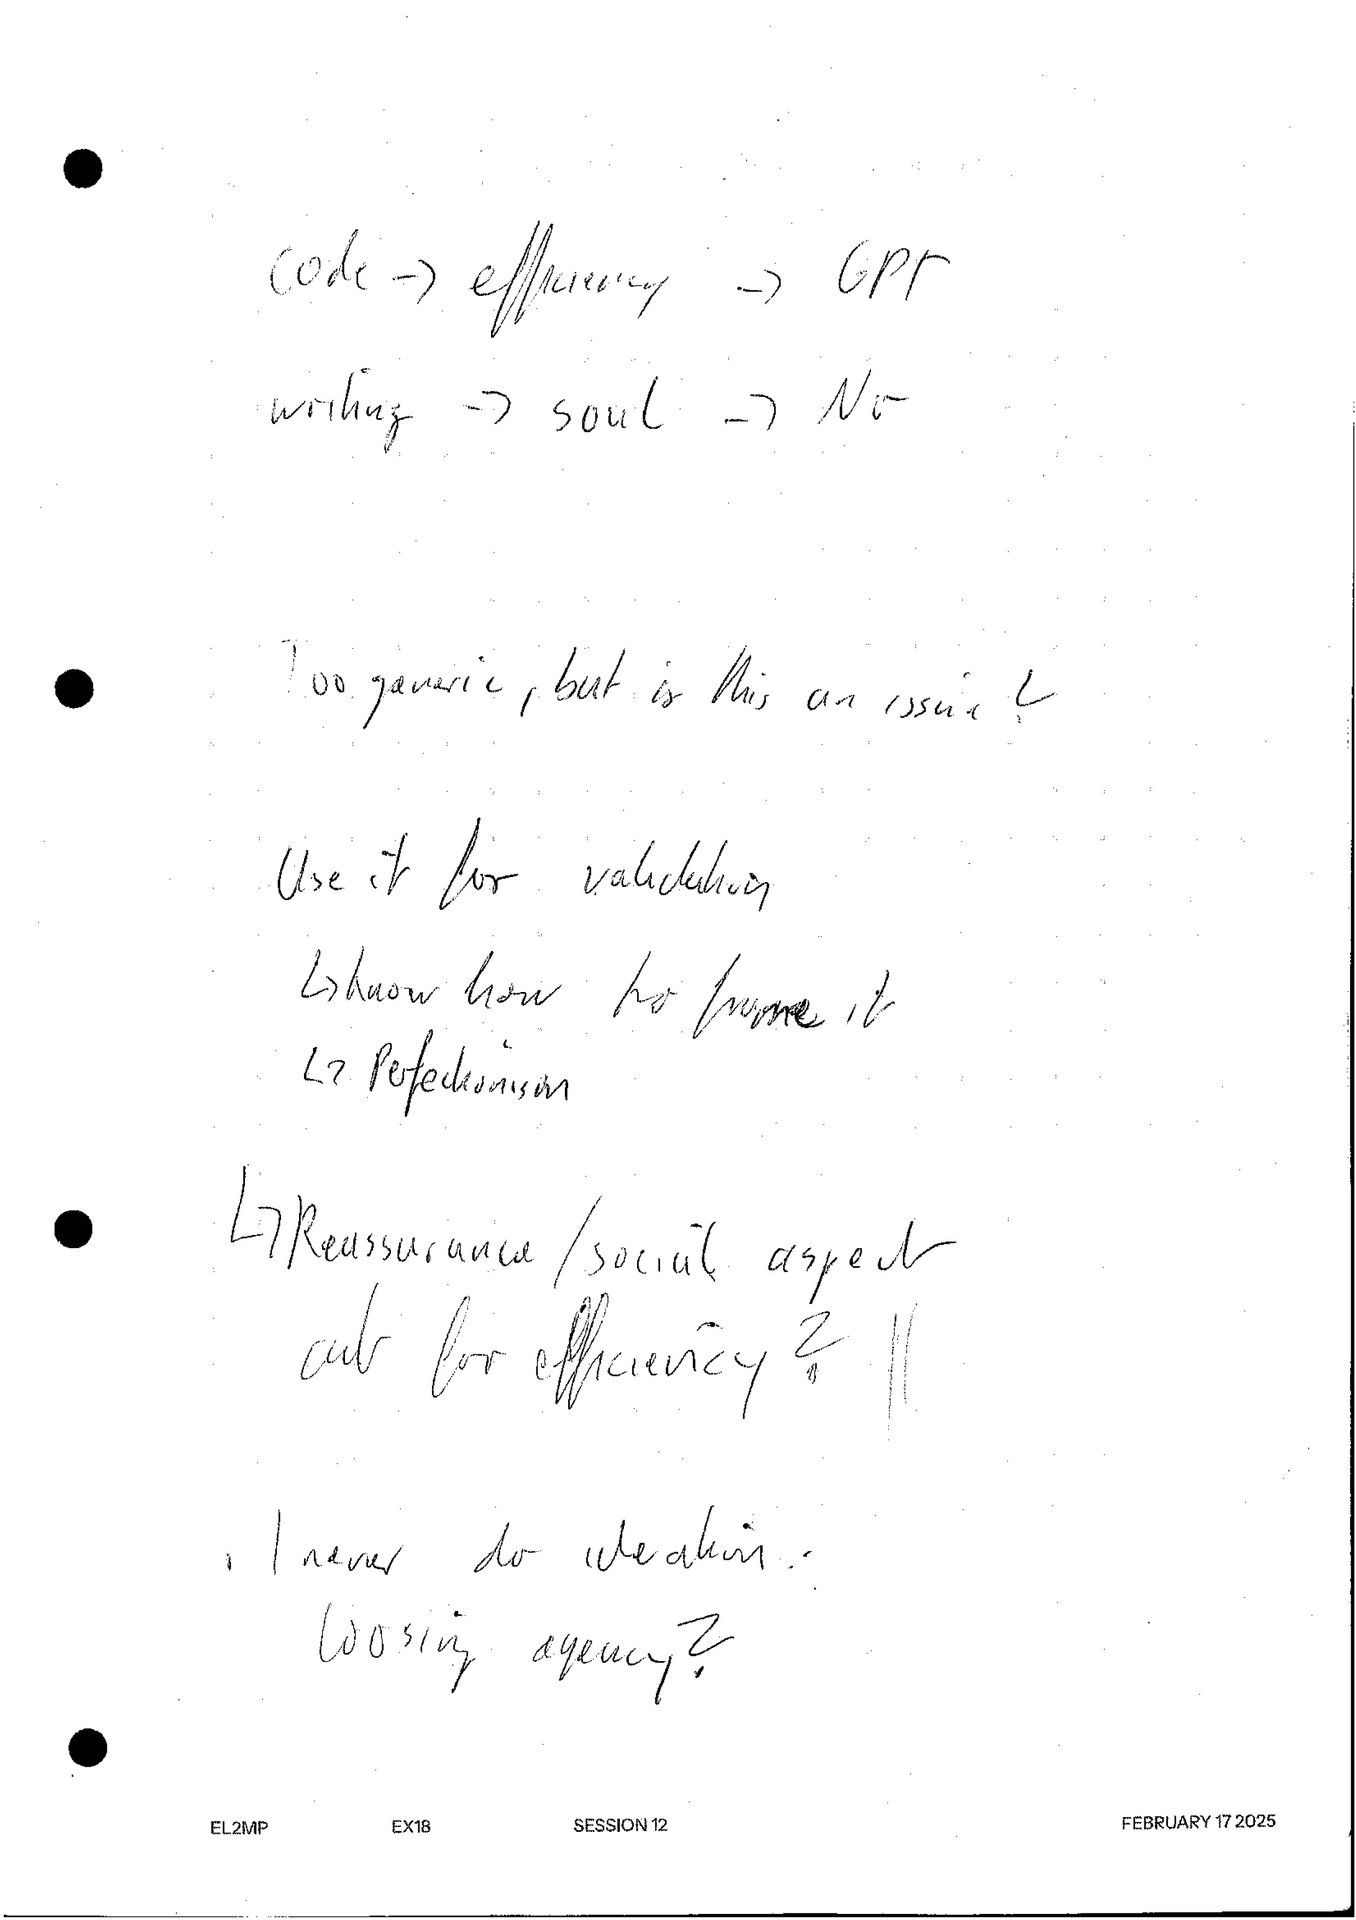 code -> efficiency -> GPT
writing -> soul -> No
Too generic, but is this an issue?
Use it for validation
↳ know how to frame it
↳ Perfectionism
↳ Reassurance / social aspect
cut for efficiency? ||
. I never do ideation.
Loosing agency?
EL2MP EX18 SESSION 12 FEBRUARY 17 2025